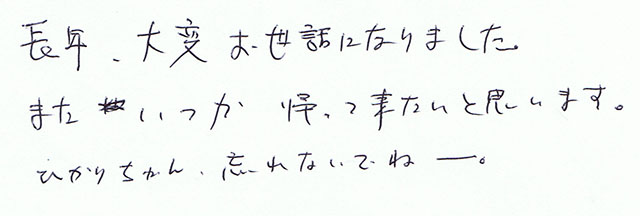 長年、大変お世話になりました。
またいつか帰って来たいと思います。
ひかりちゃん、忘れないでねー。